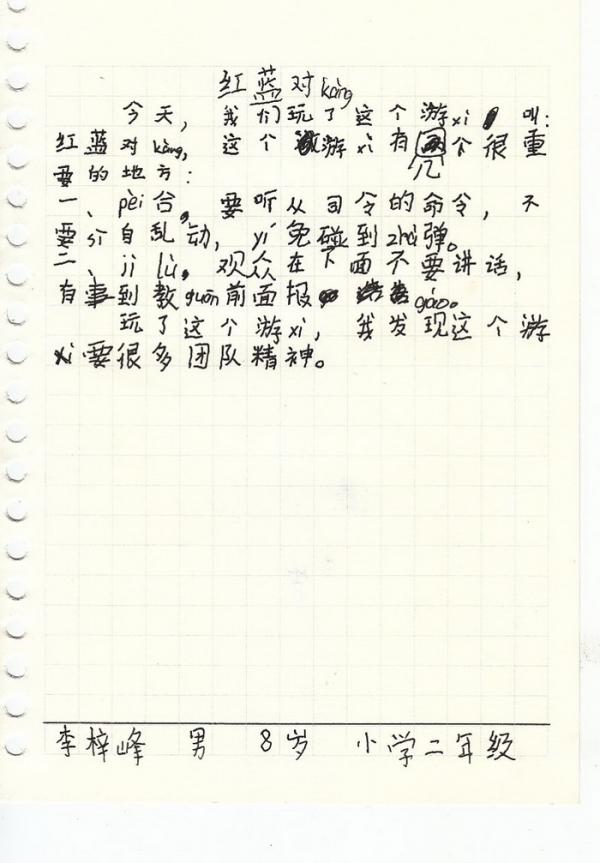 红蓝对kàng
今天，我们玩了这个游xì，叫：
红蓝对kàng，这个游xì有几个很重
要的地方：
一、pèi合。要听从司令的命令，不
要sì自乱动，yǐ免碰到zhà弹。
二、jì lǜ。观众在下面不要讲话，
有事到教guān前面报gào。
玩了这个游xì，我发现这个游
xì要很多团队精神。
李梓峰 男 8岁 小学二年级